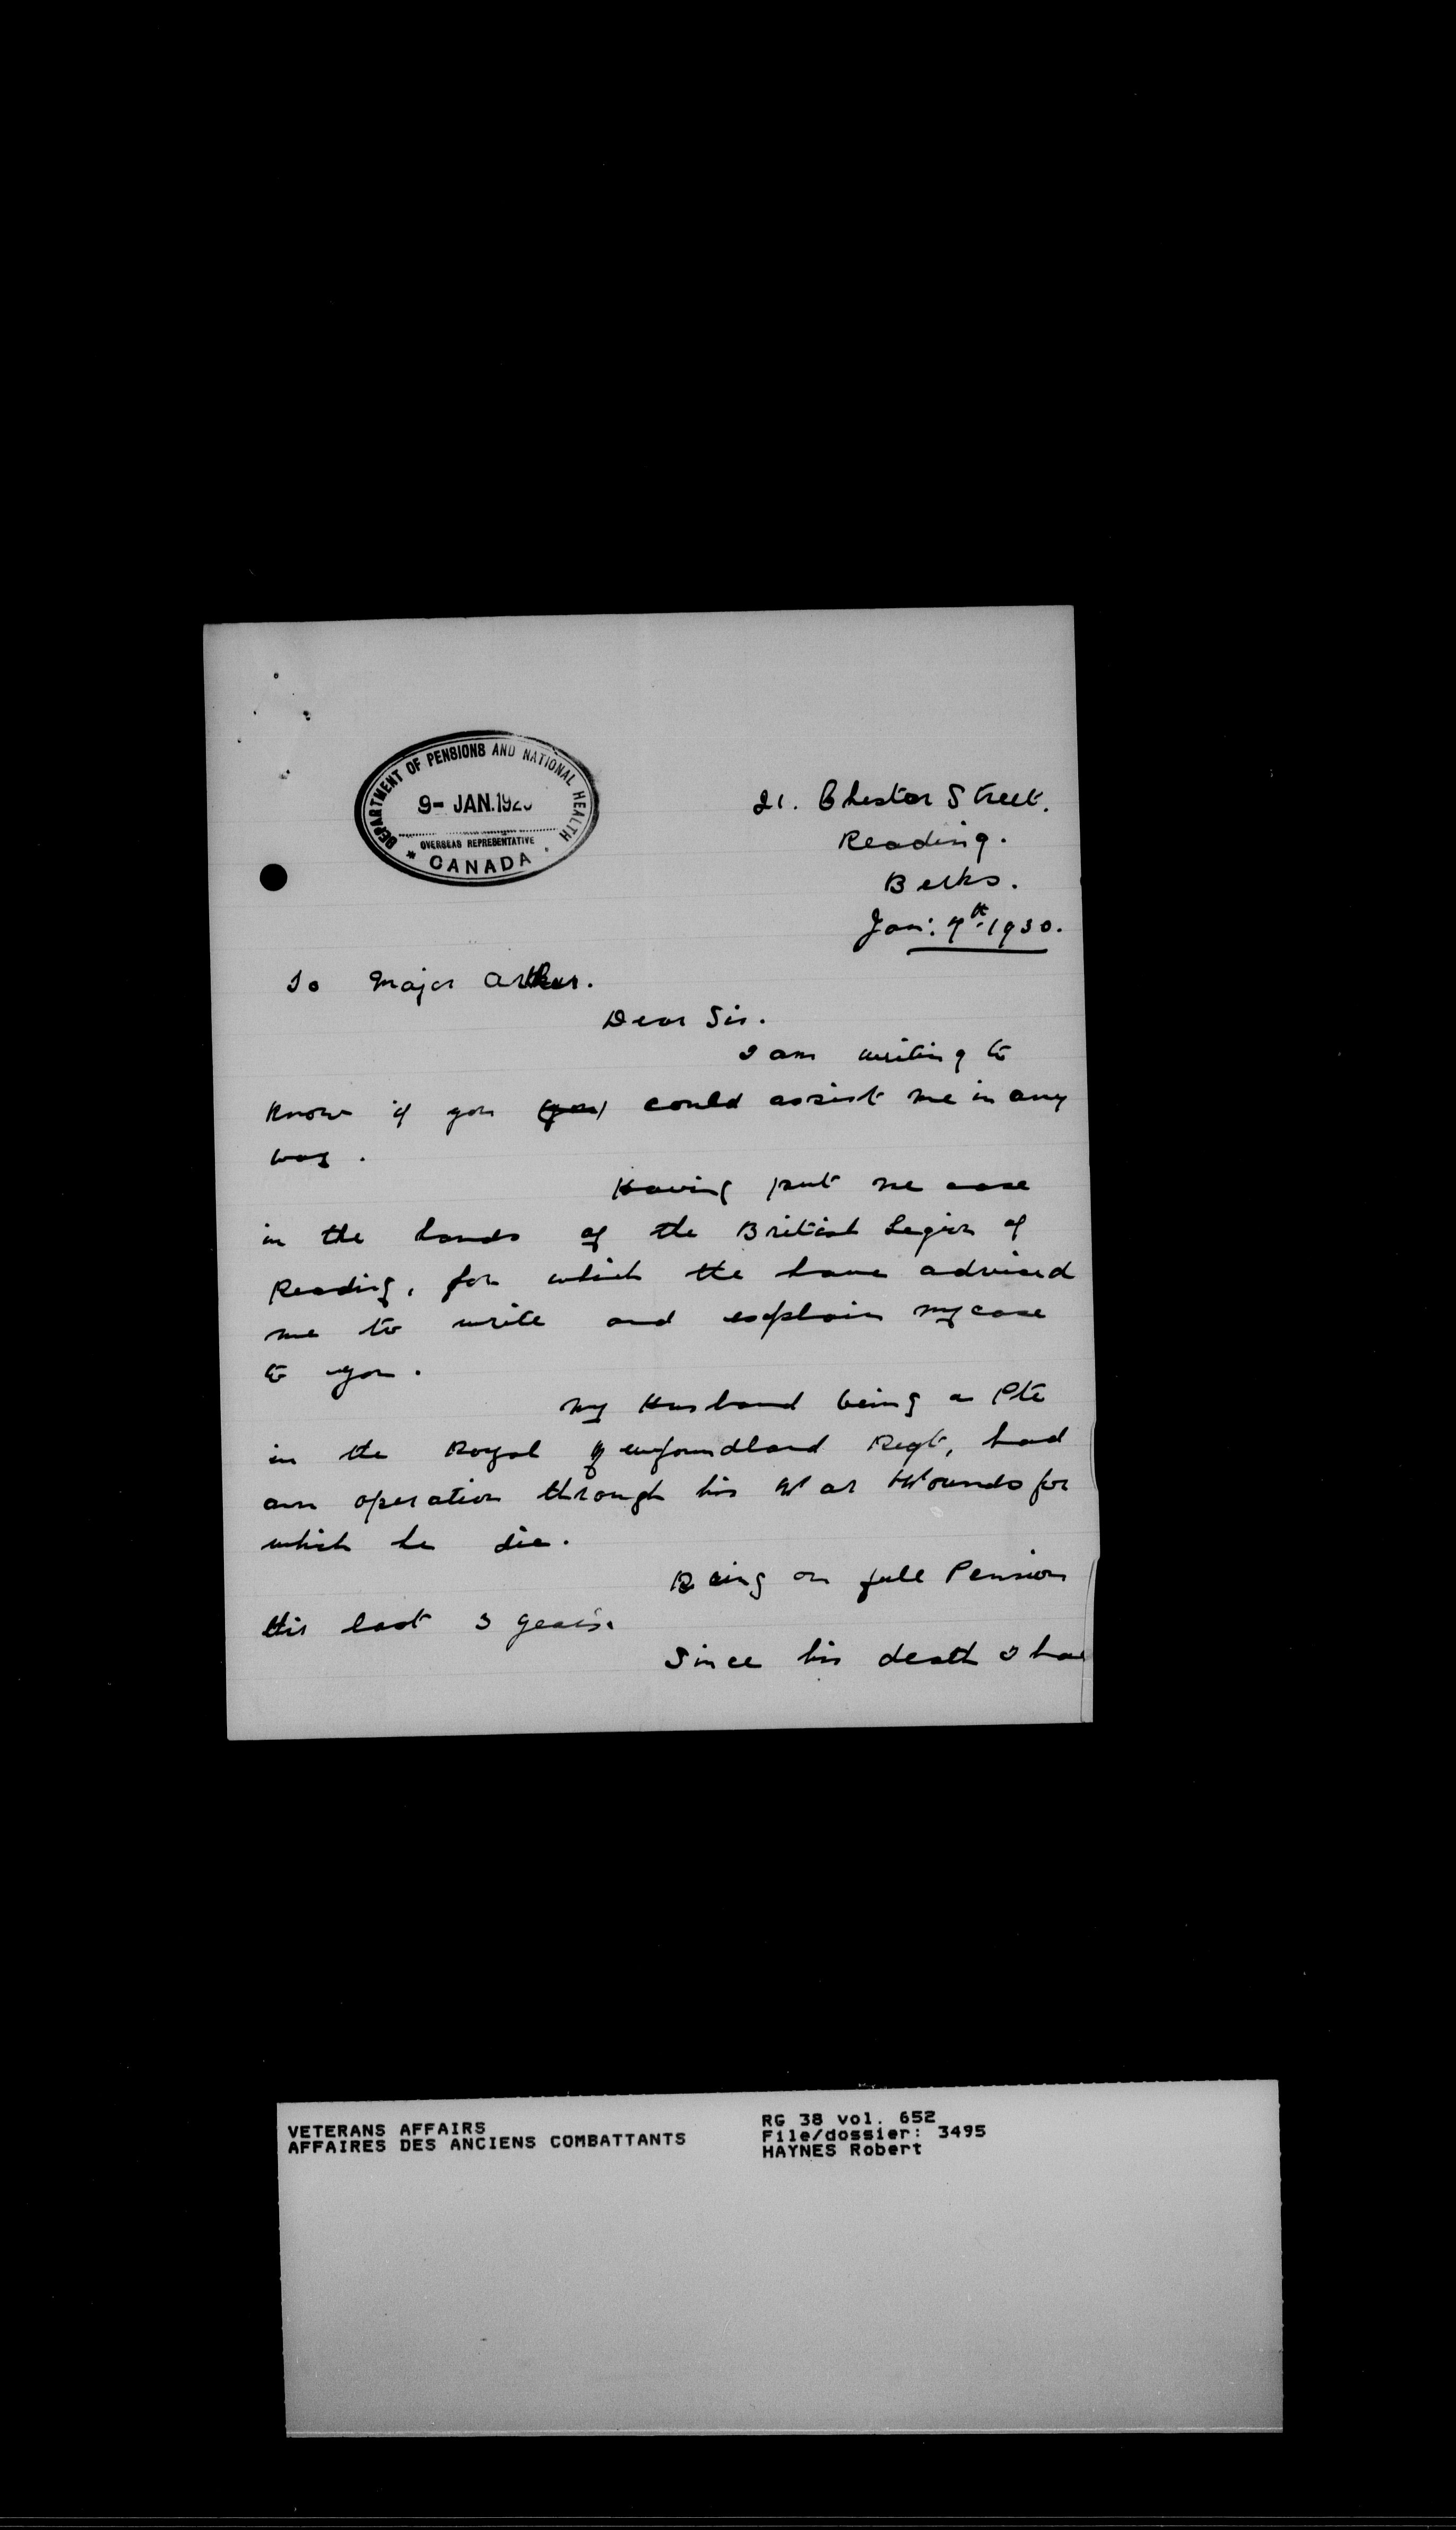 DEPARTMENT OF PENSIONS AND NATIONAL HEALTH
9- JAN.192
OVERSEAS REPRESENTATIVE
* CANADA .
21. Chester Street.
Reading.
Berks.
Jan: 7th 1930.
To Major Arthur.
Dear Sir.
I am writing to
know if you (you) could assist me in any
way.
Having put me case
in the hands of the British Legion of
Reading, for which the have advised
me to write and explain my case
to you.
My Husband being a Pte
in the Royal Newfoundland Regt, had
an operation through his War Wounds for
which he die.
Being on full Pension
this last 3 years.
Since his death I have
VETERANS AFFAIRS
AFFAIRES DES ANCIENS COMBATTANTS
RG 38 vol. 652
File/dossier: 3495
HAYNES Robert